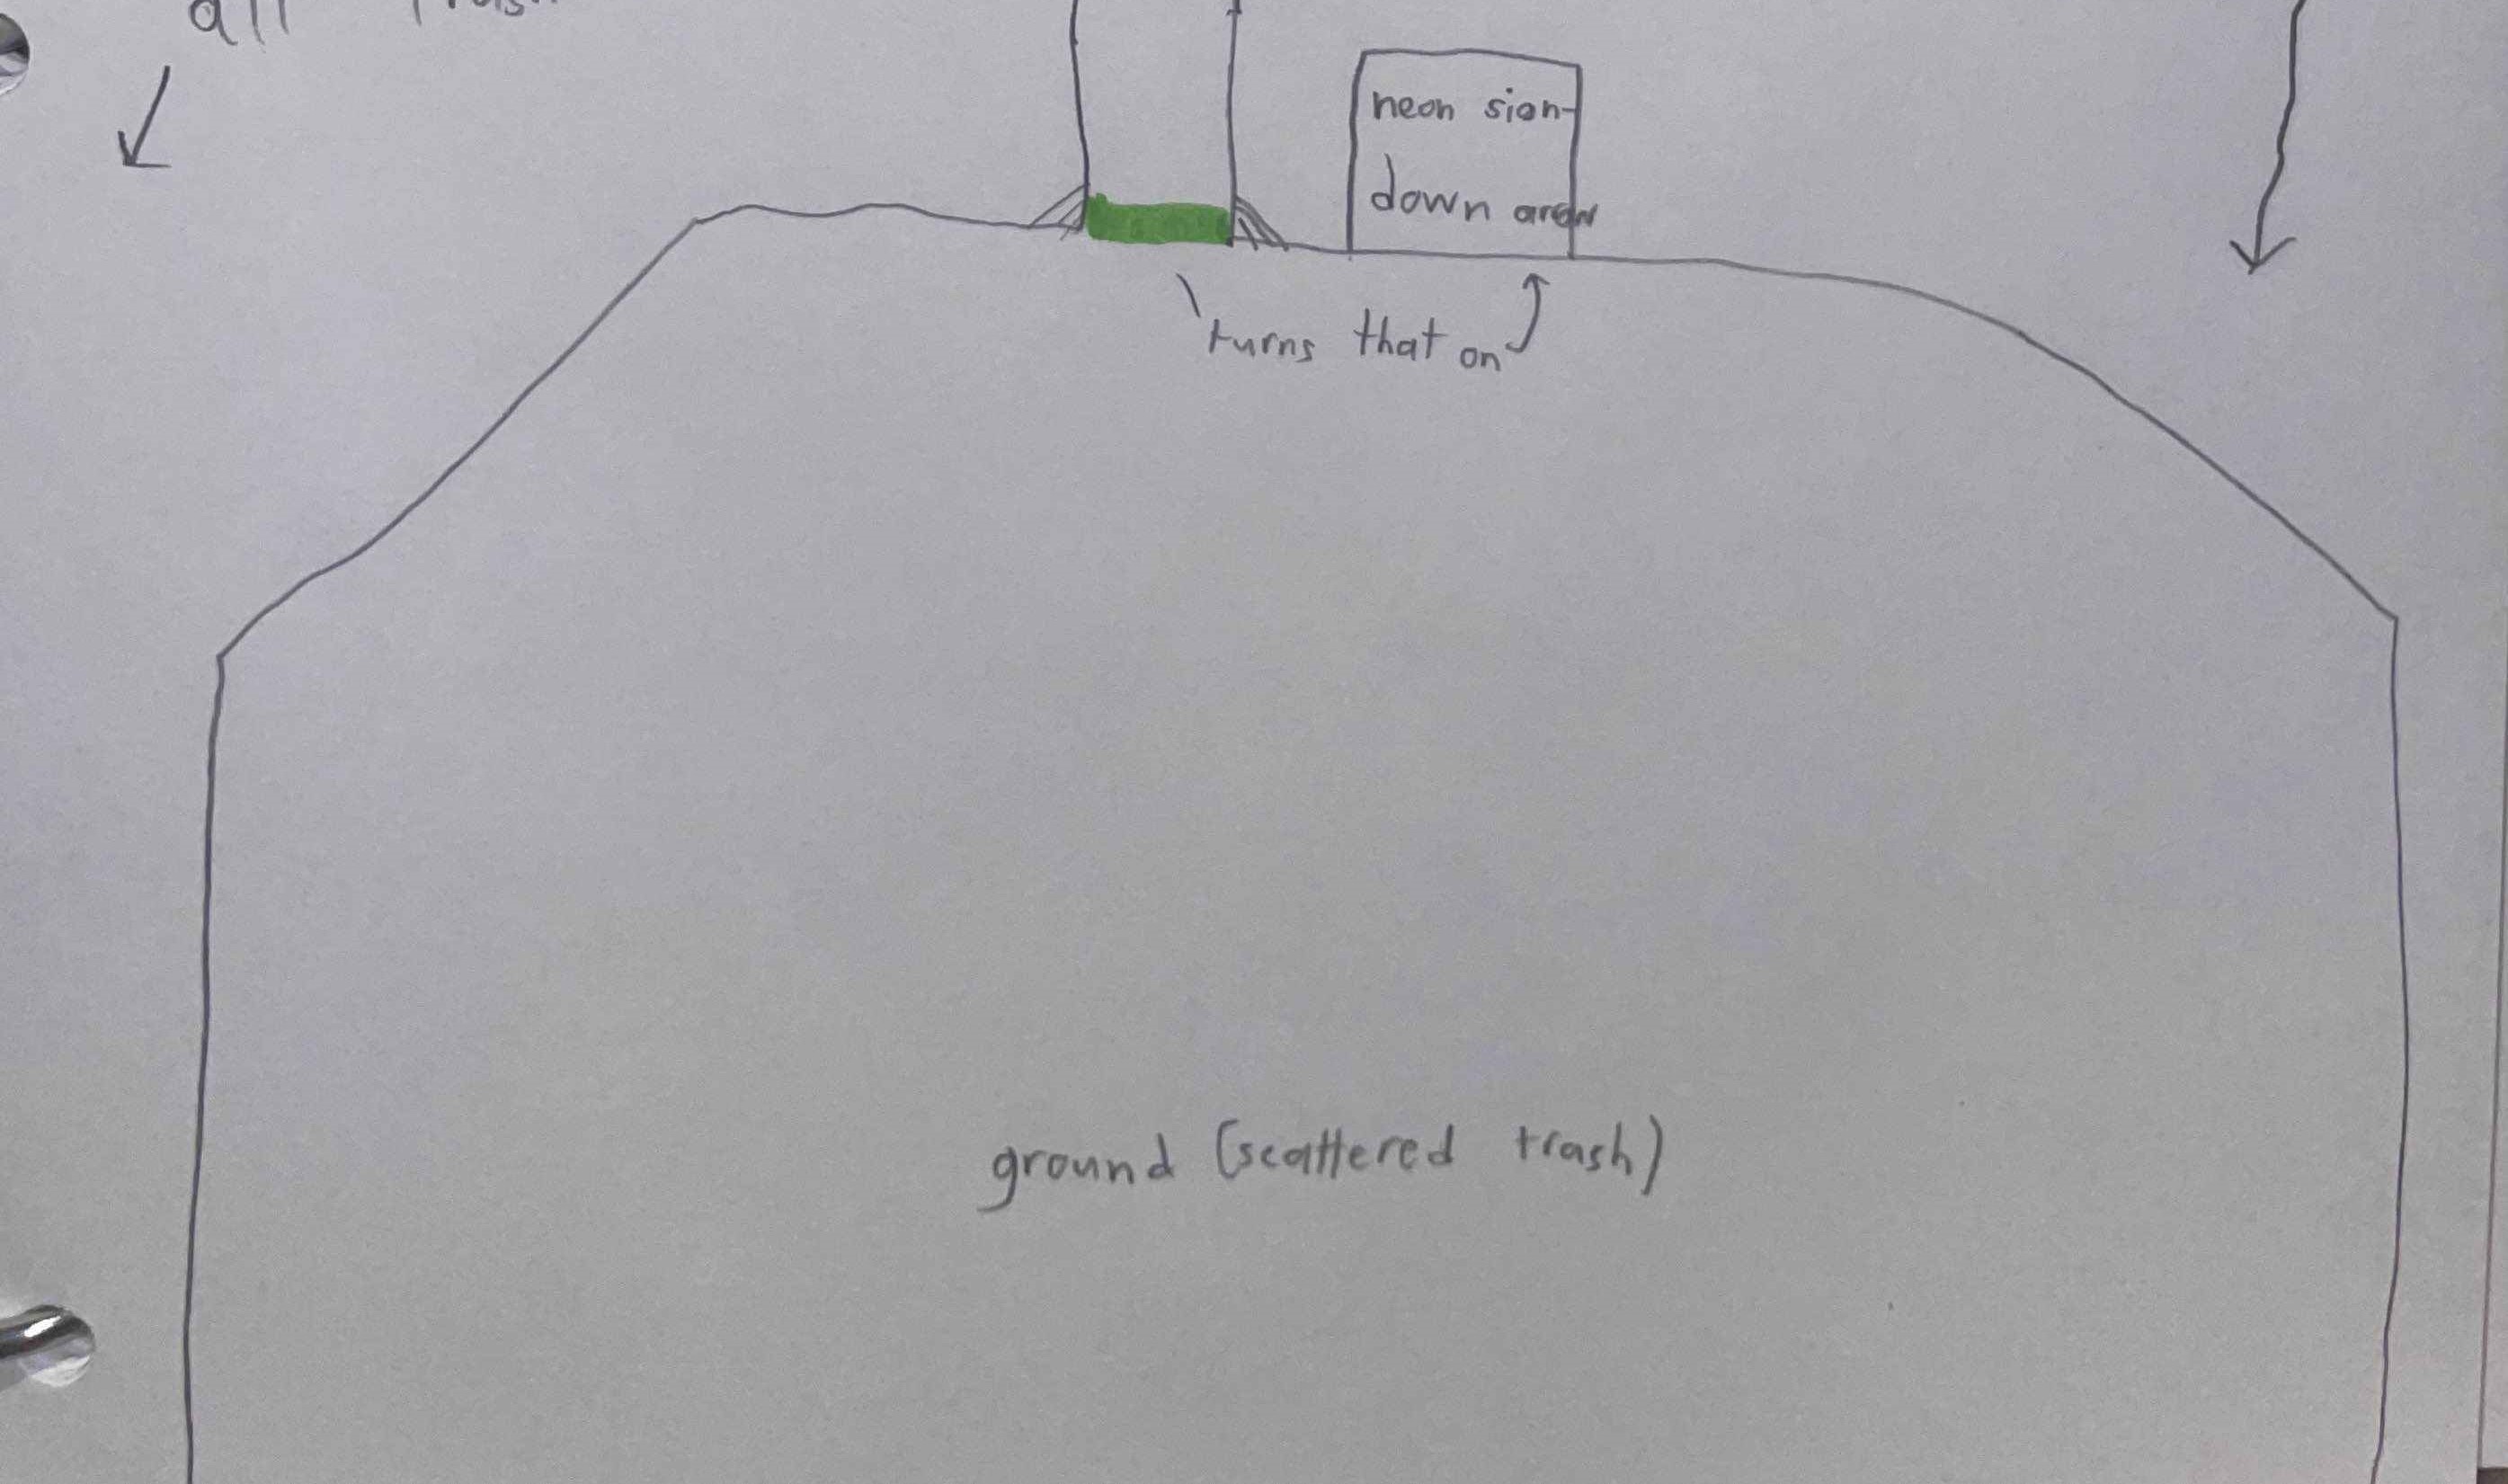 all
neon sign-
down arrow
turns that on
ground (scattered trash)